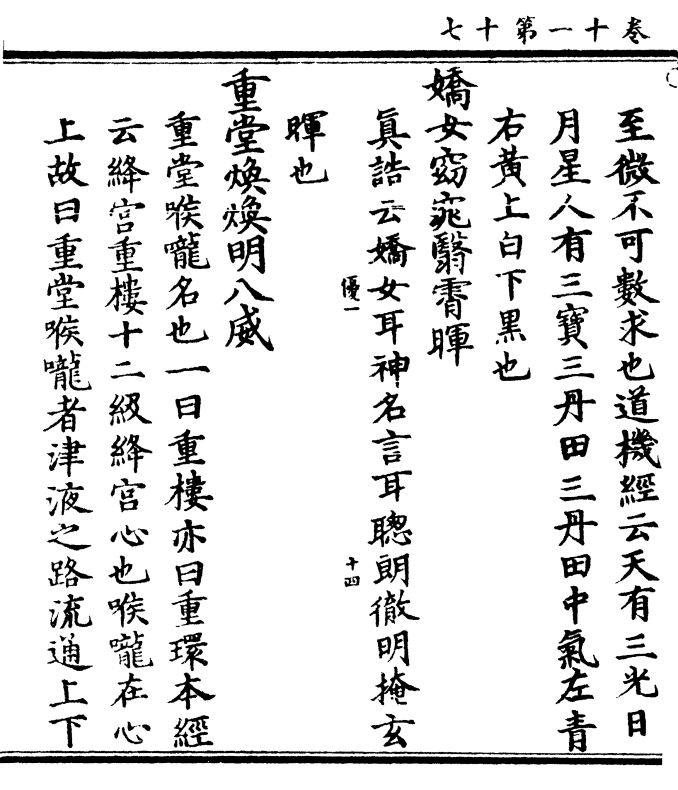 卷十一第十七
至微不可數求也道機經云天有三光日
月星人有三寶三丹田三丹田中氣左青
右黃上白下黑也
嬌女窈窕翳霄暉
真誥云嬌女耳神名言耳聰朗徹明掩玄
優一
十四
暉也
重堂煥煥明八威
重堂喉嚨名也一曰重樓亦曰重環本經
云絳宮重樓十二級絳宮心也喉嚨在心
上故曰重堂喉嚨者津液之路流通上下